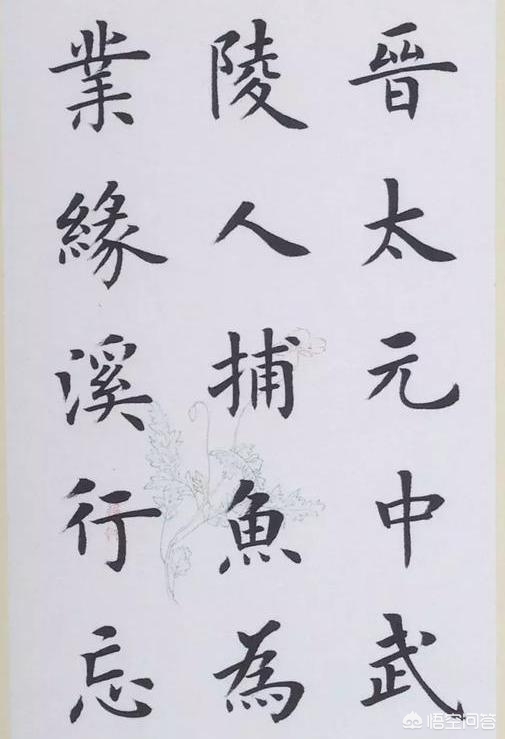 晉太元中武
陵人捕魚為
業緣溪行忘
悟空问答